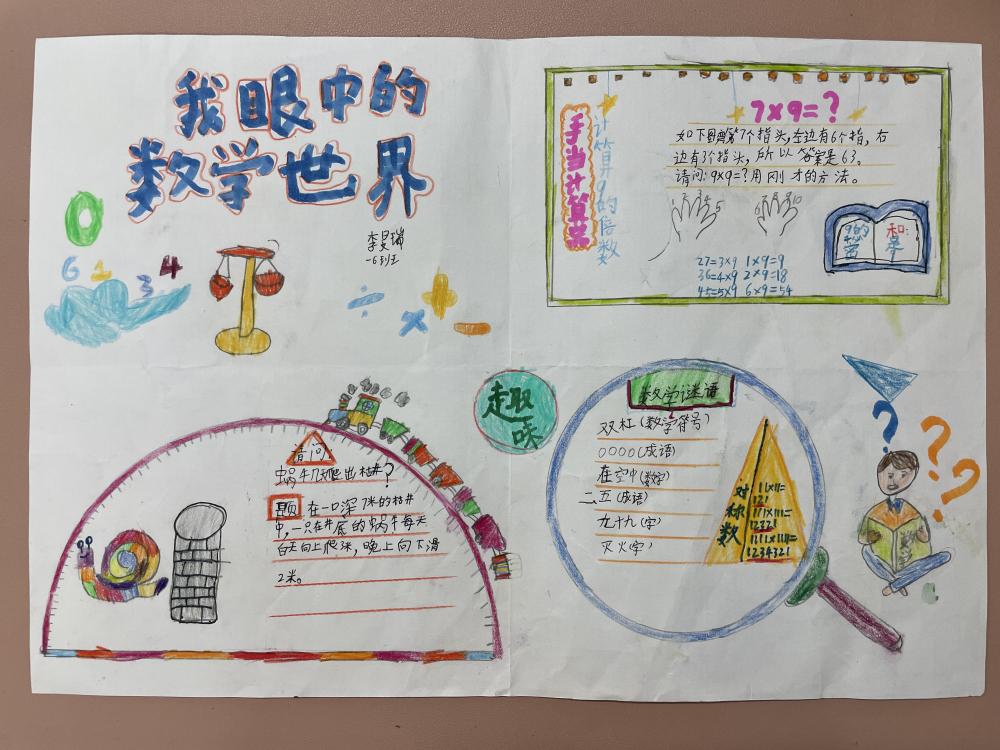 我眼中的
数学世界
李旻瑞
一6班
0
6 1 3 4
÷ × + −
手当计算器
计算9的倍数
7×9=?
如下图,第7个指头,左边有6个指,右
边有3个指头,所以答案是63。
请问:9×9=?用刚才的方法。
5 6 10
27=3×9 1×9=9
36=4×9 2×9=18
45=5×9 6×9=54
9的
和:
趣味
请问
蜗牛几天爬出枯井?
题 在一口深7米的枯井
中,一只在井底的蜗牛每天
白天向上爬3米,晚上向下滑
2米。
数学谜语
双杠(数学符号)
0000(成语)
在空中(数字)
二五(成语)
九十九(字)
灭火(字)
对称数
11×11=
121
111×111=
12321
1111×1111=
1234321
? ? ?